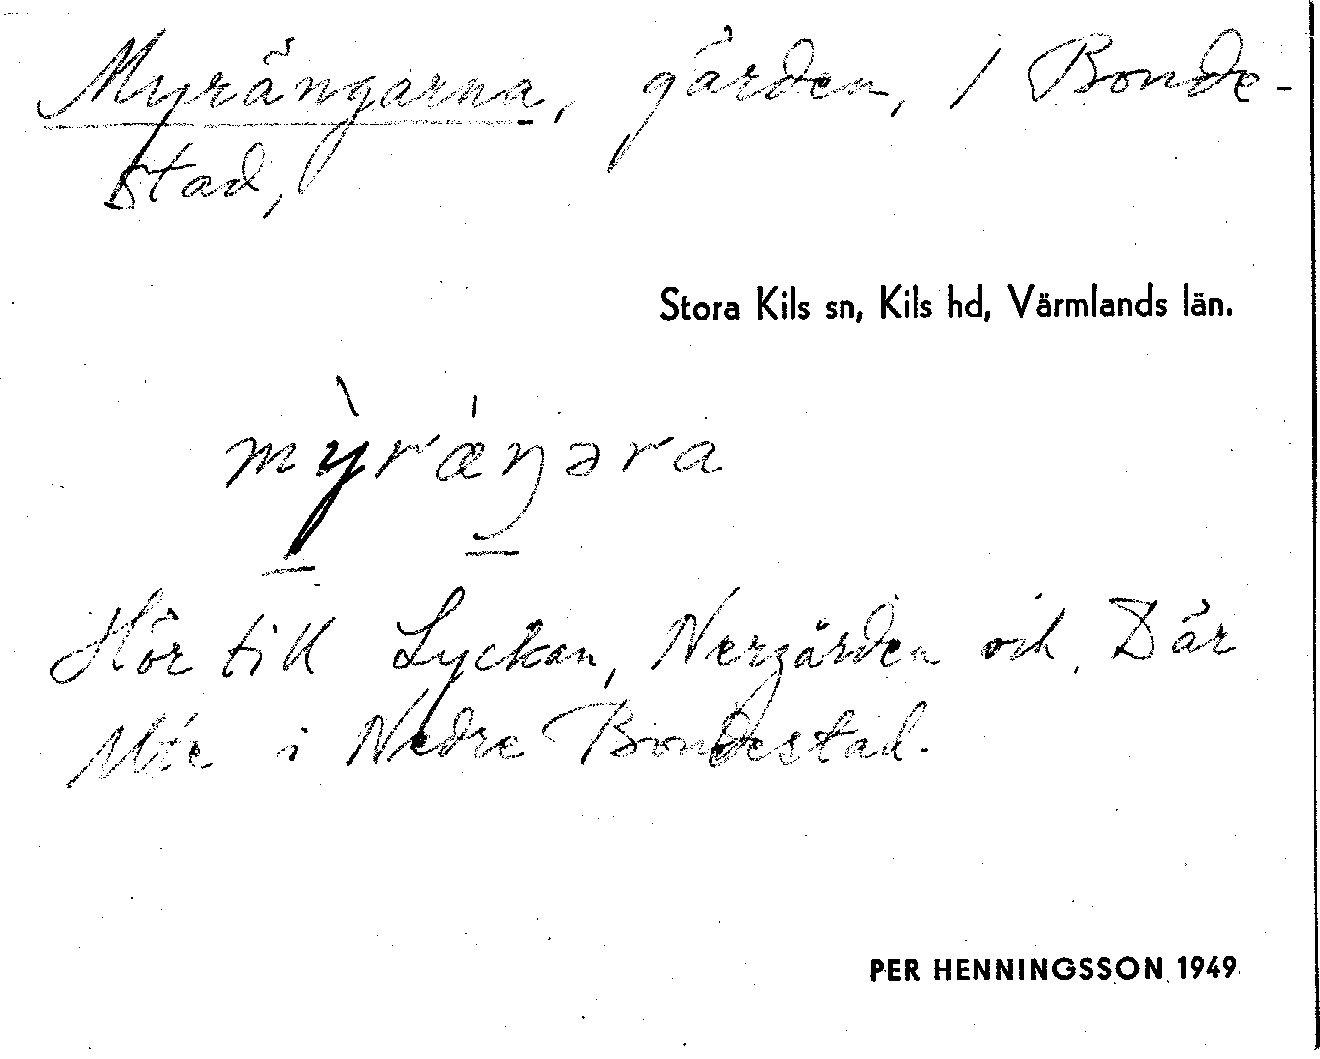 Myrängarna, gården, / Bonde-
stad,
Stora Kils sn, Kils hd, Värmlands län.
mỳrǽŋəra
Hör till Lyckan, Nergården och Där
Ute i Nedre Bondestad.
PER HENNINGSSON 1949